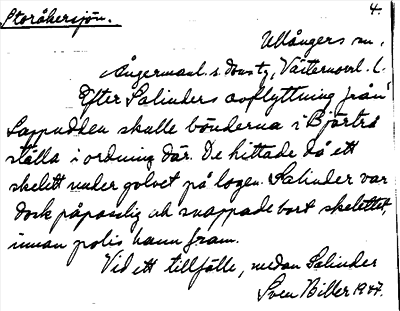 Storåkersjön.
4.
Ullångers sn.
Ångermanl. s. domsg, Västernorrl. l.
Efter Salinders avflyttning från
Lappudden skulle bönderna i Bjärtrå
ställa i ordning där. De hittade då ett
skelett under golvet på logen. Salinder var
dock påpasslig och snappade bort skelettet,
innan polis hann fram.
Vid ett tillfälle, medan Salinder
Sven Biller 1947.